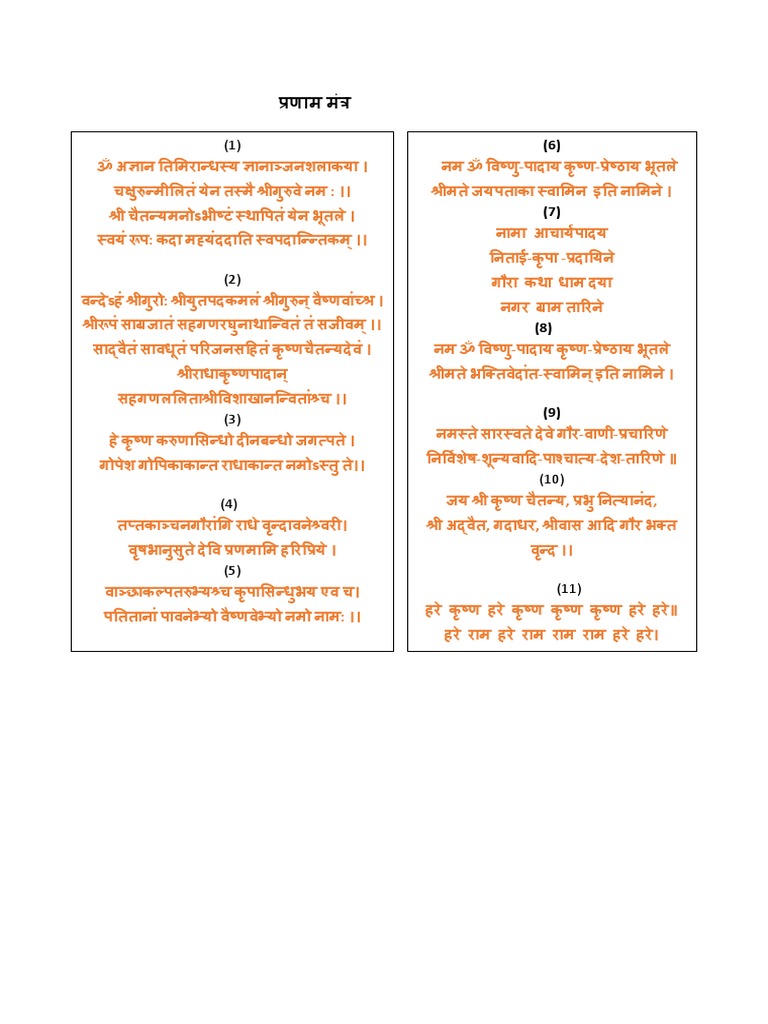 प्रणाम मंत्र
(1)
ॐ अज्ञान तिमिरान्धस्य ज्ञानाञ्जनशलाकया ।
चक्षुरुन्मीलितं येन तस्मै श्रीगुरुवे नम : ।।
श्री चैतन्यमनोsभीष्टं स्थापितं येन भूतले ।
स्वयं रूप: कदा मह्यंददाति स्वपदान्न्तिकम् ।।
(2)
वन्देsहं श्रीगुरो: श्रीयुतपदकमलं श्रीगुरुन् वैष्णवांच्श्र ।
श्रीरूपं साग्रजातं सहगणरघुनाथान्वितं तं सजीवम् ।।
साद्वैतं सावधूतं परिजनसहितं कृष्णचैतन्यदेवं ।
श्रीराधाकृष्णपादान्
सहगणललिताश्रीविशाखानन्वितांश्र्च ।।
(3)
हे कृष्ण करुणासिन्धो दीनबन्धो जगत्पते ।
गोपेश गोपिकाकान्त राधाकान्त नमोsस्तु ते।।
(4)
तप्तकाञ्चनगौरांगि राधे वृन्दावनेश्र्वरी।
वृषभानुसुते देवि प्रणमामि हरिप्रिये ।
(5)
वाञ्छाकल्पतरुभ्यश्र्च कृपासिन्धुभय एव च।
पतितानां पावनेभ्यो वैष्णवेभ्यो नमो नाम: ।।
(6)
नम ॐ विष्णु-पादाय कृष्ण-प्रेष्ठाय भूतले
श्रीमते जयपताका स्वामिन इति नामिने ।
(7)
नामा आचार्यपादय
निताई-कृपा -प्रदायिने
गौरा कथा धाम दया
नगर ग्राम तारिने
(8)
नम ॐ विष्णु-पादाय कृष्ण-प्रेष्ठाय भूतले
श्रीमते भक्तिवेदांत-स्वामिन् इति नामिने ।
(9)
नमस्ते सारस्वते देवे गौर-वाणी-प्रचारिणे
निर्विशेष-शून्यवादि-पाश्चात्य-देश-तारिणे ॥
(10)
जय श्री कृष्ण चैतन्य, प्रभु नित्यानंद,
श्री अद्वैत, गदाधर, श्रीवास आदि गौर भक्त
वृन्द ।।
(11)
हरे कृष्ण हरे कृष्ण कृष्ण कृष्ण हरे हरे॥
हरे राम हरे राम राम राम हरे हरे।